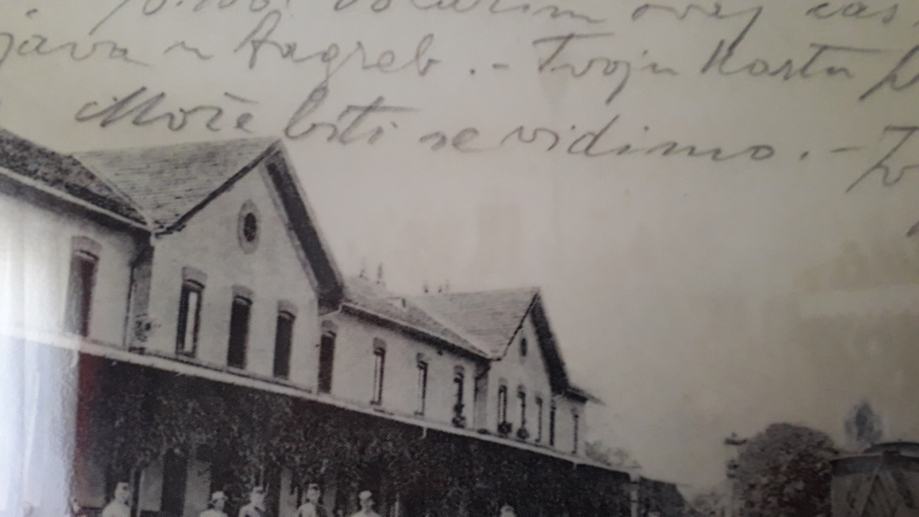 ovaj čas
java u Zagreb. - Tvoju kartu
Može biti se vidimo. -